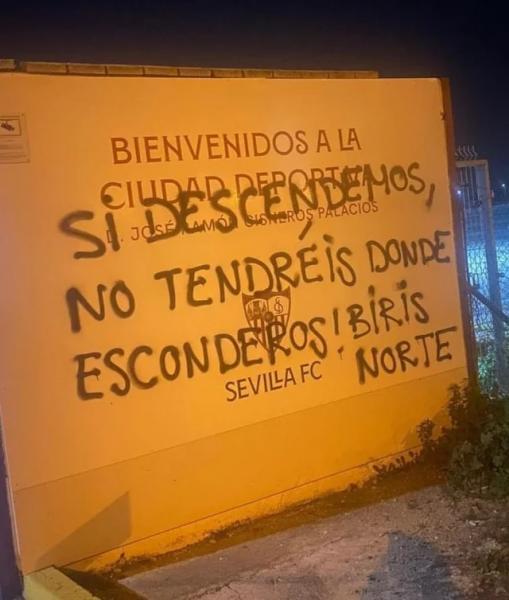 BIENVENIDOS A LA
CIUDAD DEPORTIVA
D. JOSÉ RAMÓN CISNEROS PALACIOS
SI DESCENDEMOS,
NO TENDRÉIS DONDE
ESCONDEROS! BIRIS
NORTE
SEVILLA FC